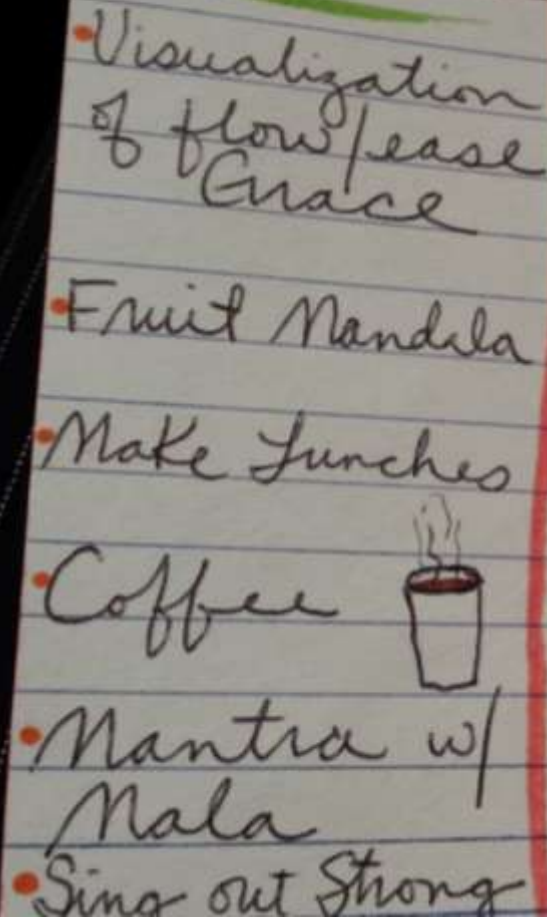 Visualization
of flow/ease
Grace
Fruit Mandala
Make Lunches
Coffee
Mantra w/
Mala
Sing out Strong